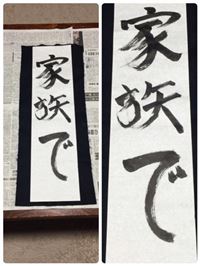 家族で
家族で